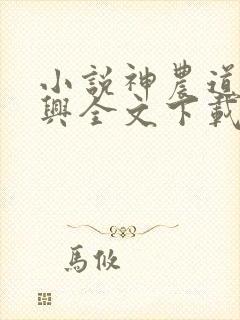 小說神農道
興全文下載
馬攸